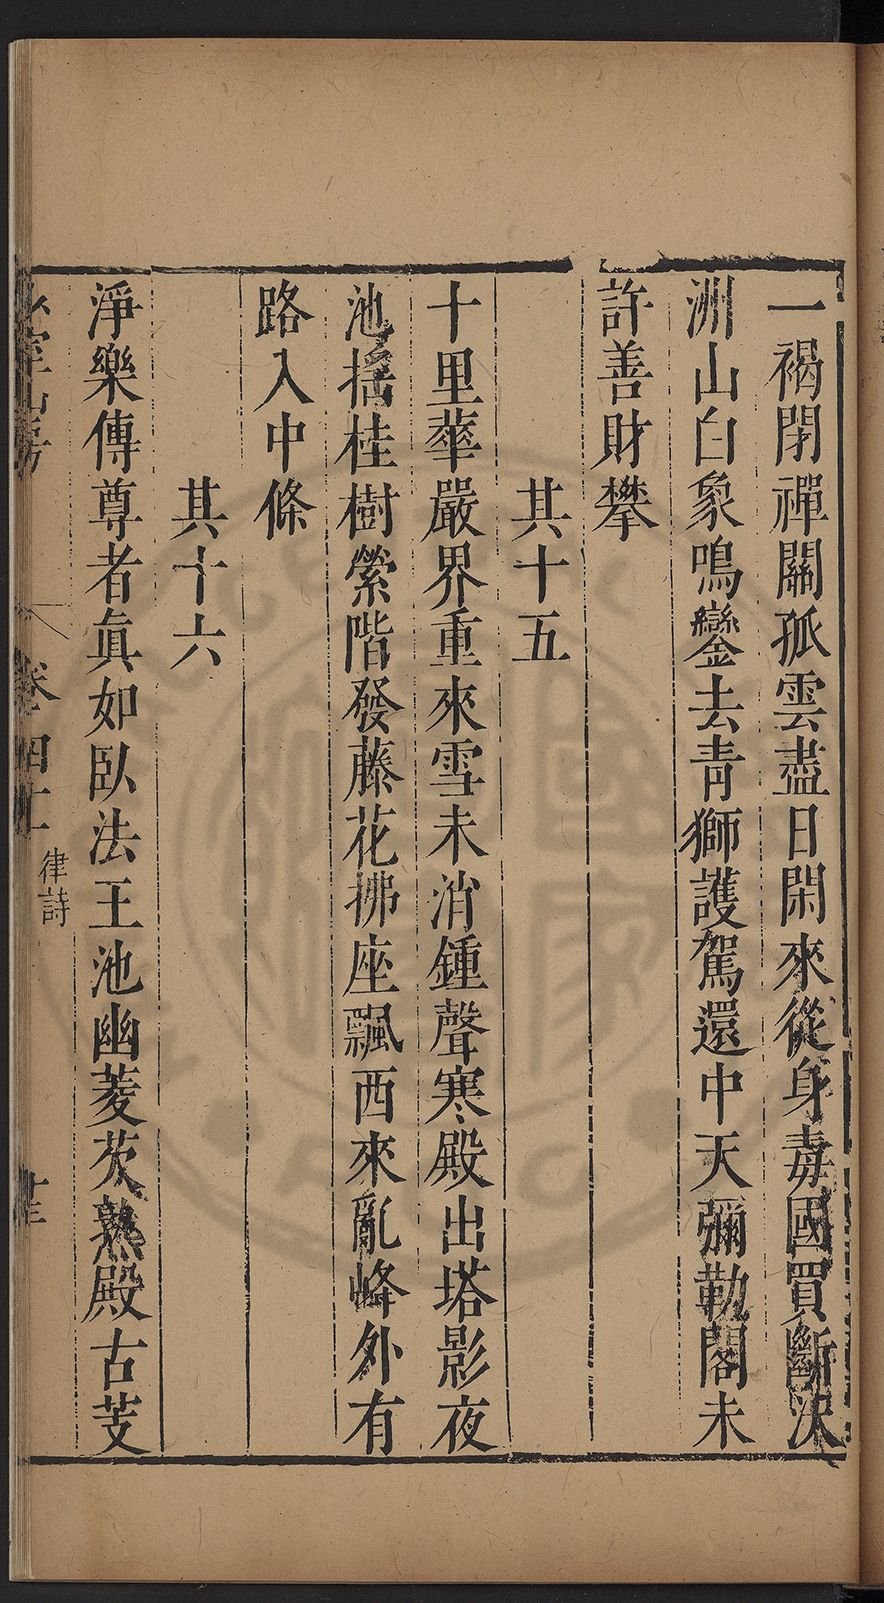 一褐閉禪關孤雲盡日閑來從身毒國買斷沃
洲山白象鳴鑾去青獅護駕還中天彌勒閣未
許善財攀
其十五
十里華嚴界重來雪未消鍾聲寒殿出塔影夜
池搖桂樹縈階發藤花拂座飄西來亂峰外有
路入中條
其十六
淨樂傳尊者眞如臥法王池幽菱芡熟殿古芰
室山房
卷四十
律詩